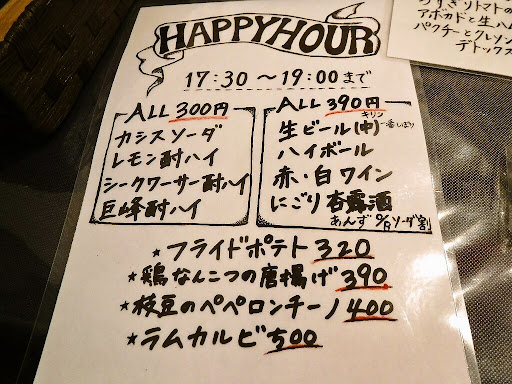 HAPPY HOUR
17:30 〜 19:00 まで
ALL 300円
カシスソーダ
レモン酎ハイ
シークワーサー酎ハイ
巨峰酎ハイ
ALL 390円
キリン
生ビール(中) 一番しぼり
ハイボール
赤・白ワイン
にごり杏露酒
あんず ロック ソーダ割
★フライドポテト 320
★鶏なんこつの唐揚げ 390
★枝豆のペペロンチーノ 400
★ラムカルビ 500
トマトの
アボカドと生ハ
パクチーとクレソン
デトックス